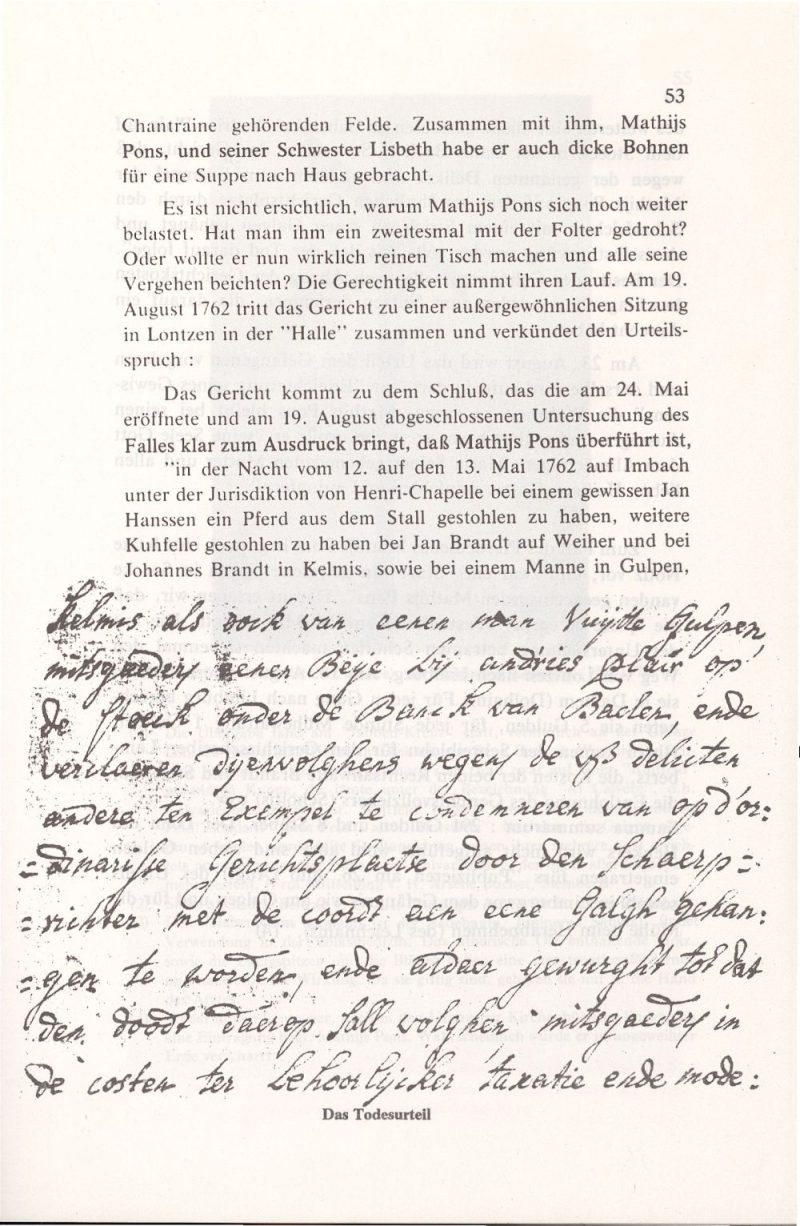 53
Chantraine gehörenden Felde. Zusammen mit ihm, Mathijs
Pons, und seiner Schwester Lisbeth habe er auch dicke Bohnen
für eine Suppe nach Haus gebracht.
Es ist nicht ersichtlich, warum Mathijs Pons sich noch weiter
belastet. Hat man ihm ein zweitesmal mit der Folter gedroht?
Oder wollte er nun wirklich reinen Tisch machen und alle seine
Vergehen beichten? Die Gerechtigkeit nimmt ihren Lauf. Am 19.
August 1762 tritt das Gericht zu einer außergewöhnlichen Sitzung
in Lontzen in der "Halle" zusammen und verkündet den Urteils-
spruch :
Das Gericht kommt zu dem Schluß, das die am 24. Mai
eröffnete und am 19. August abgeschlossenen Untersuchung des
Falles klar zum Ausdruck bringt, daß Mathijs Pons überführt ist,
"in der Nacht vom 12. auf den 13. Mai 1762 auf Imbach
unter der Jurisdiktion von Henri-Chapelle bei einem gewissen Jan
Hanssen ein Pferd aus dem Stall gestohlen zu haben, weitere
Kuhfelle gestohlen zu haben bei Jan Brandt auf Weiher und bei
Johannes Brandt in Kelmis, sowie bei einem Manne in Gulpen,
Kelmis als oock van eenen man Vuijtte Gulpen,
mitsgaeders eenen Beye bij andries op
de stock onder de Banck van Baelen, ende
verclaeren dijenvolghens wegens de delicten
andere ten Exempel te condemneren van op d'or:
=dinarisse Gerichtsplaetse door den Schaerp=
=richter met de coordt aen eene Galgh gehan:
=gen te worden, ende aldaer gewurght tot dat
den doodt daerop sall volghen mitsgaeders in
de costen ter behoorlijcker taxatie ende mode:
Das Todesurteil